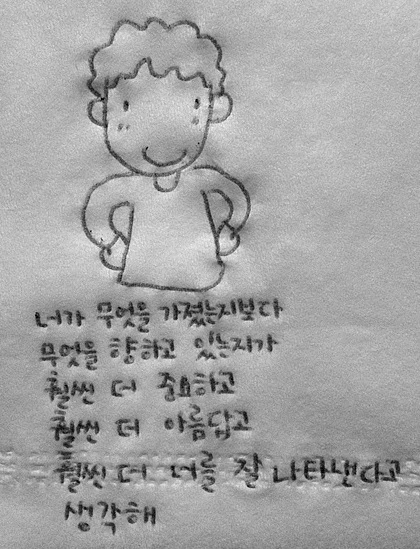 너가 무엇을 가졌는지보다
무엇을 향하고 있는지가
훨씬 더 중요하고
훨씬 더 아름답고
훨씬 더 너를 잘 나타낸다고
생각해